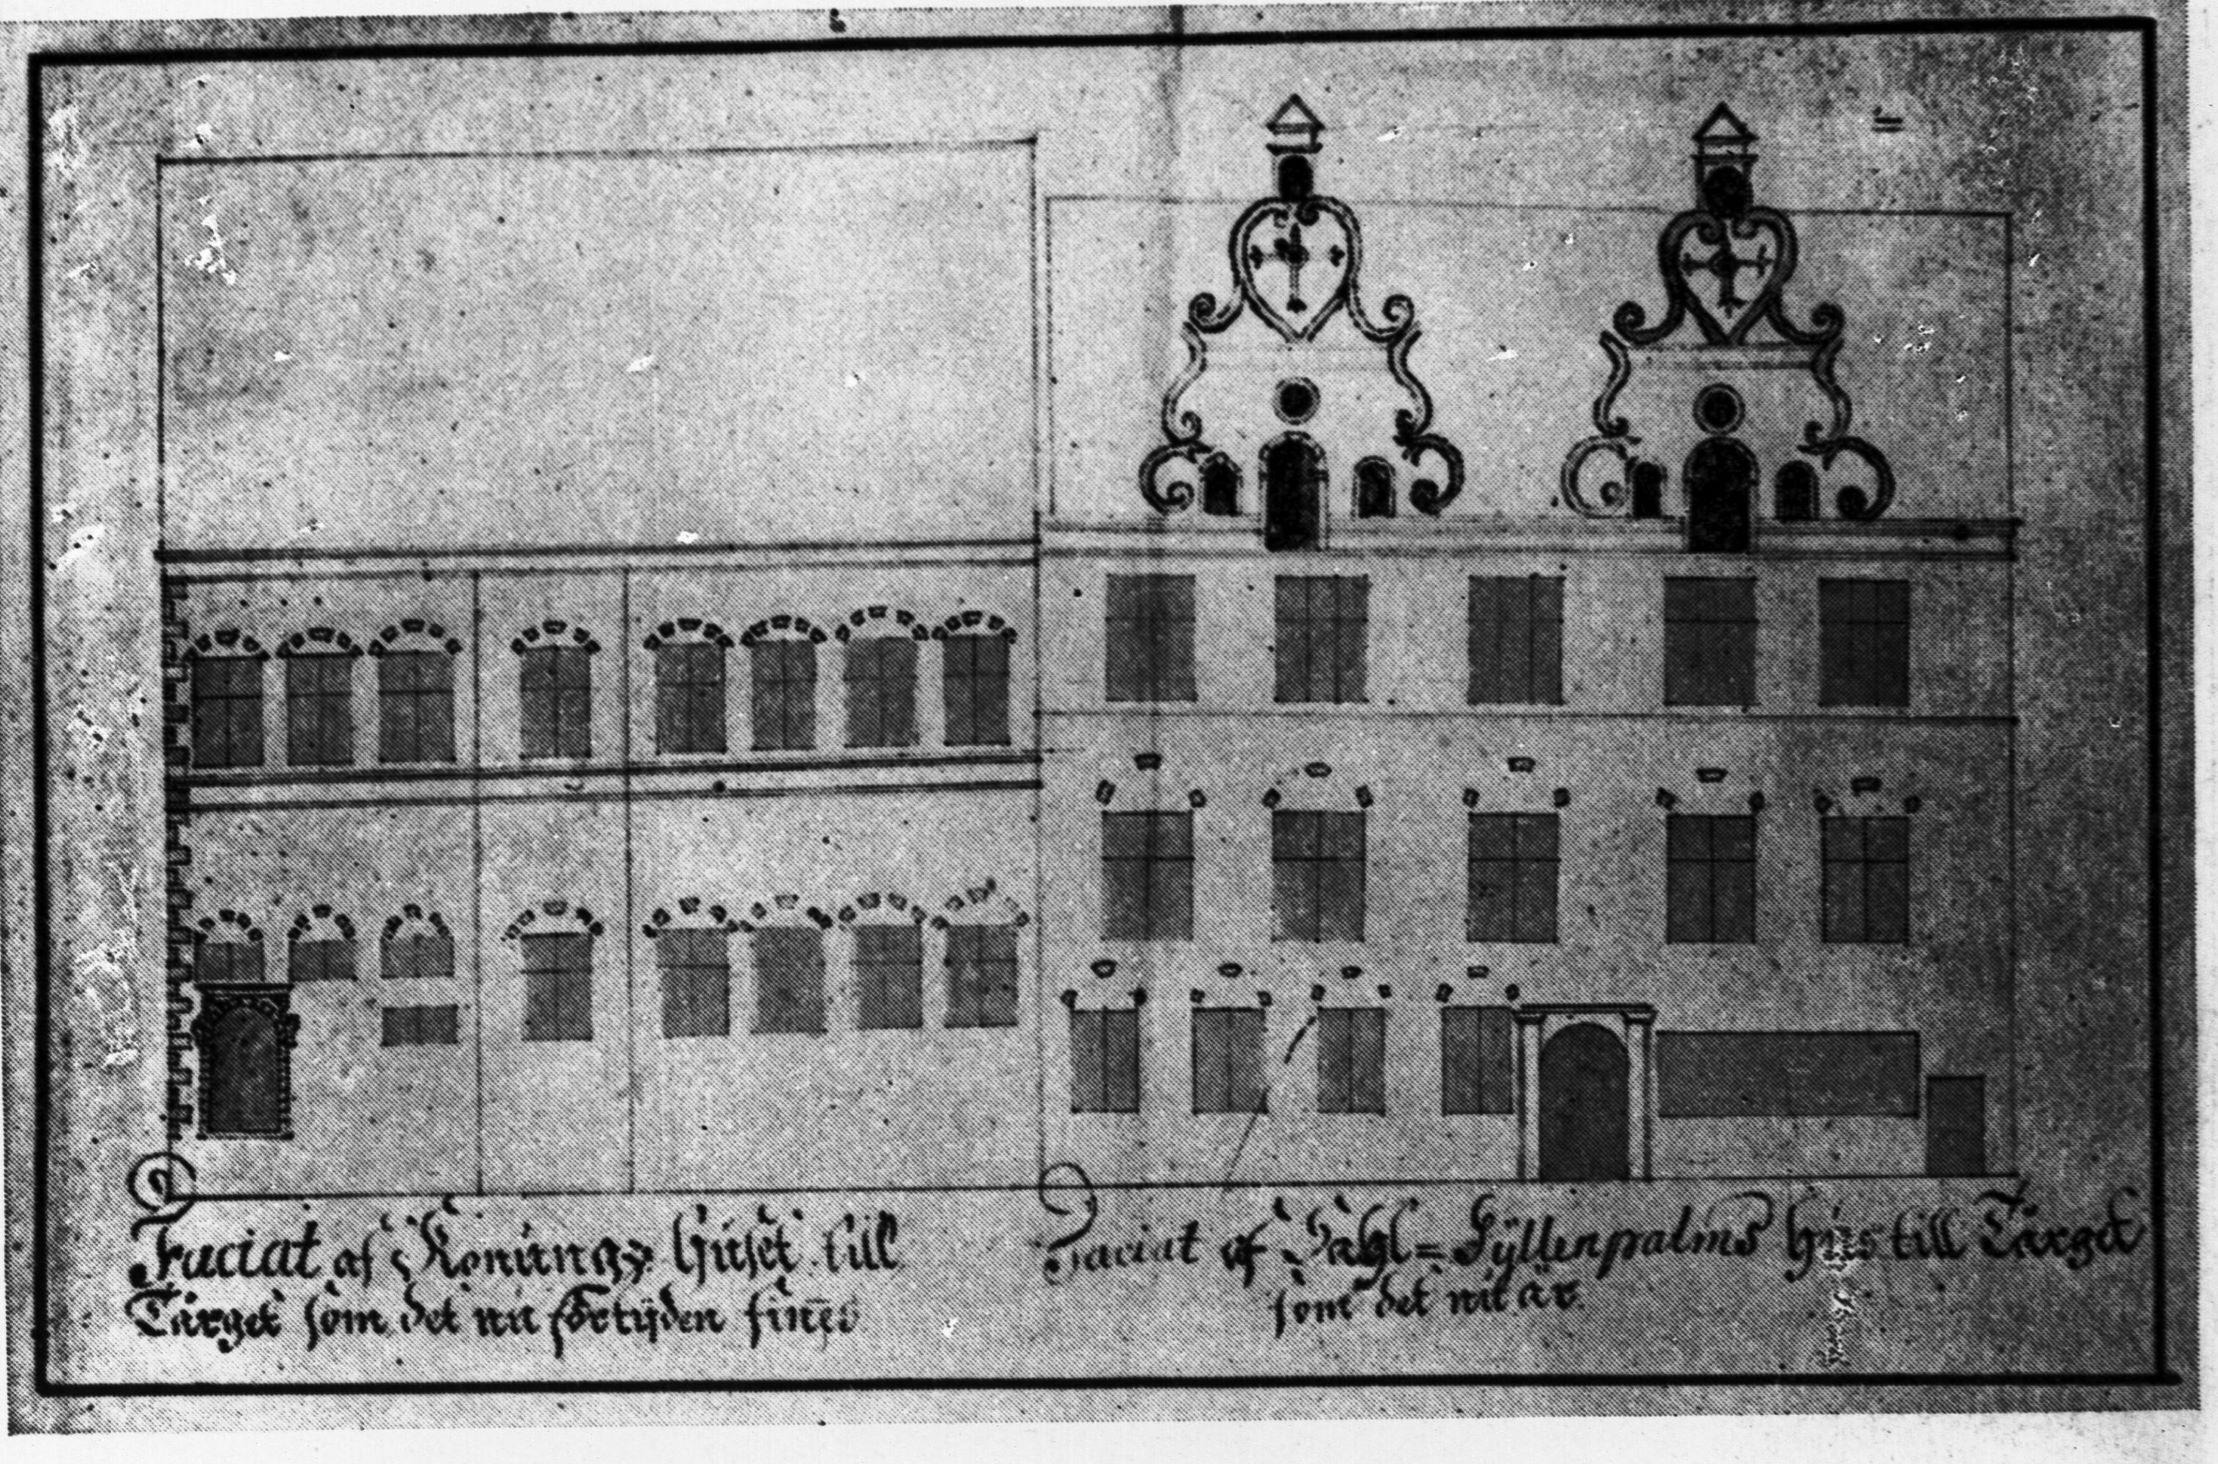 Faciat af Konungz Huset till
Tårget som det nu förtijden finnes
Faciat af Sahl= Gyllenpalms hus till Tårget
som det nu är.